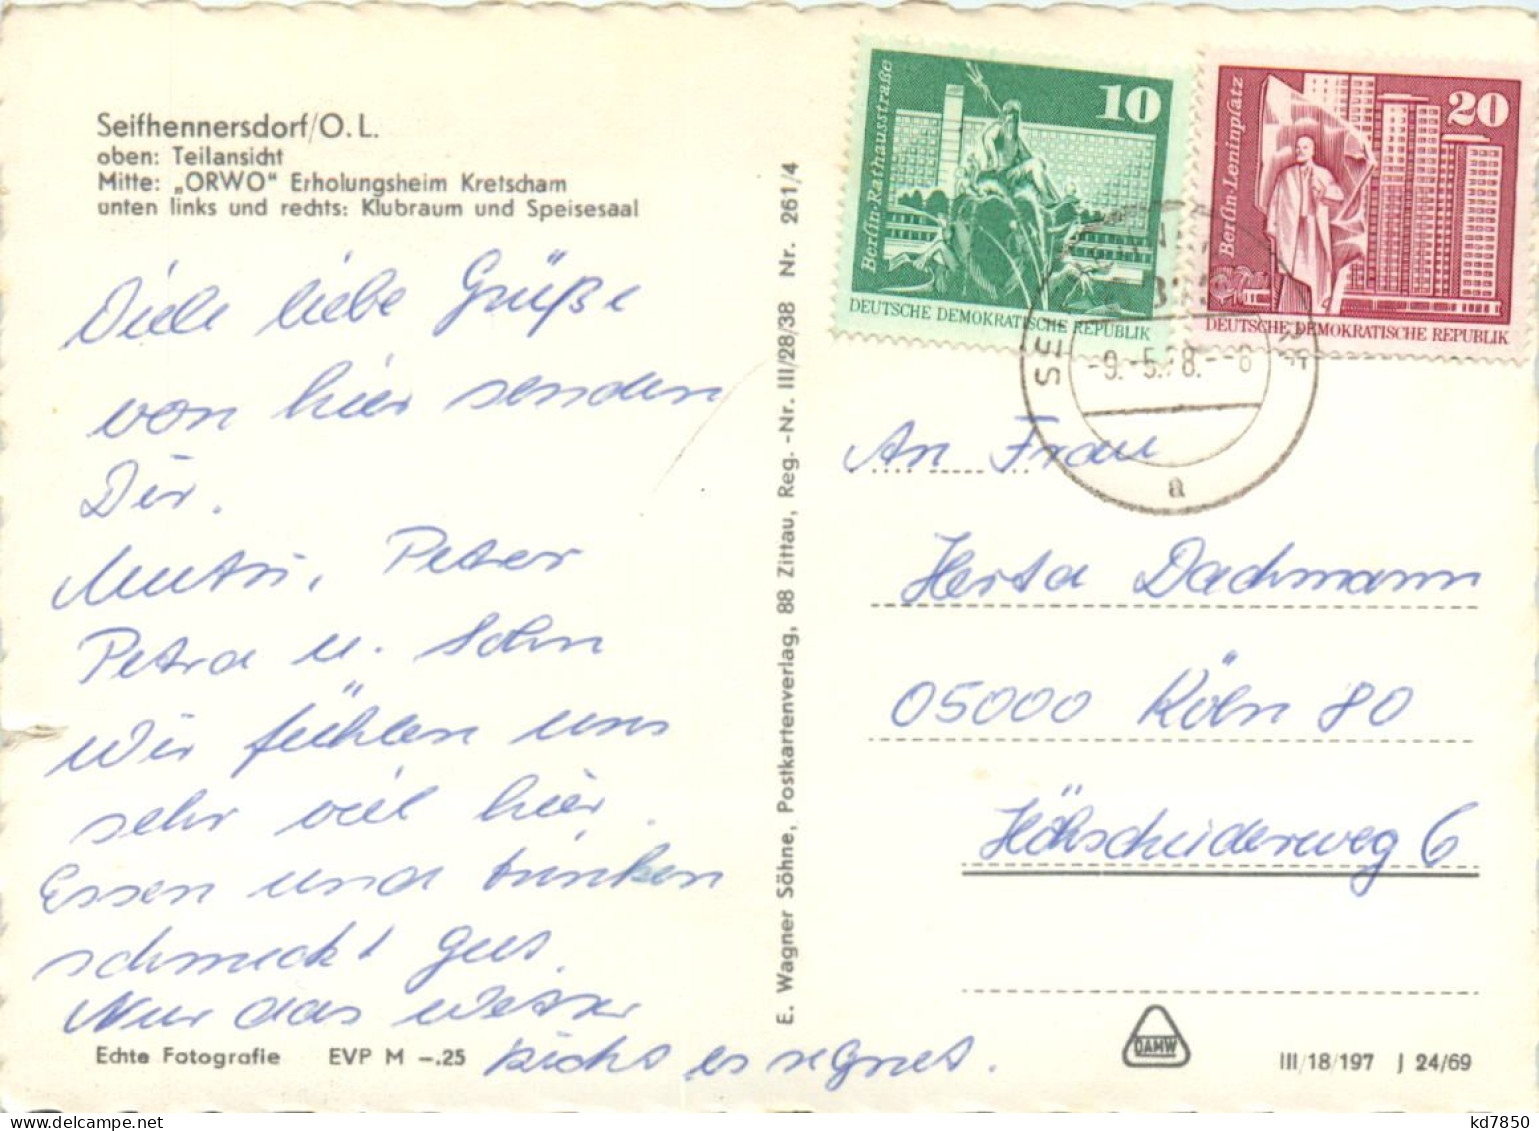 Seifhennersdorf/O. L.
oben: Teilansicht
Mitte: „ORWO" Erholungsheim Kretscham
unten links und rechts: Klubraum und Speisesaal
Viele liebe Grüße
von hier senden
Dir.
Mutti, Peter
Petra u. Sohn
Wir fühlen uns
sehr viel hier.
Essen und trinken
schmeckt gut.
Nur das Wetter
es regnet.
Echte Fotografie EVP M –.25
E. Wagner Söhne, Postkartenverlag, 88 Zittau, Reg.-Nr. III/28/38 Nr. 261/4
10
Berlin-Rathausstraße
DEUTSCHE DEMOKRATISCHE REPUBLIK
20
Berlin-Leninplatz
DEUTSCHE DEMOKRATISCHE REPUBLIK
a
An Frau
Herta Dachmann
05000 Köln 80
6
DAMW
III/18/197 J 24/69
kd7850